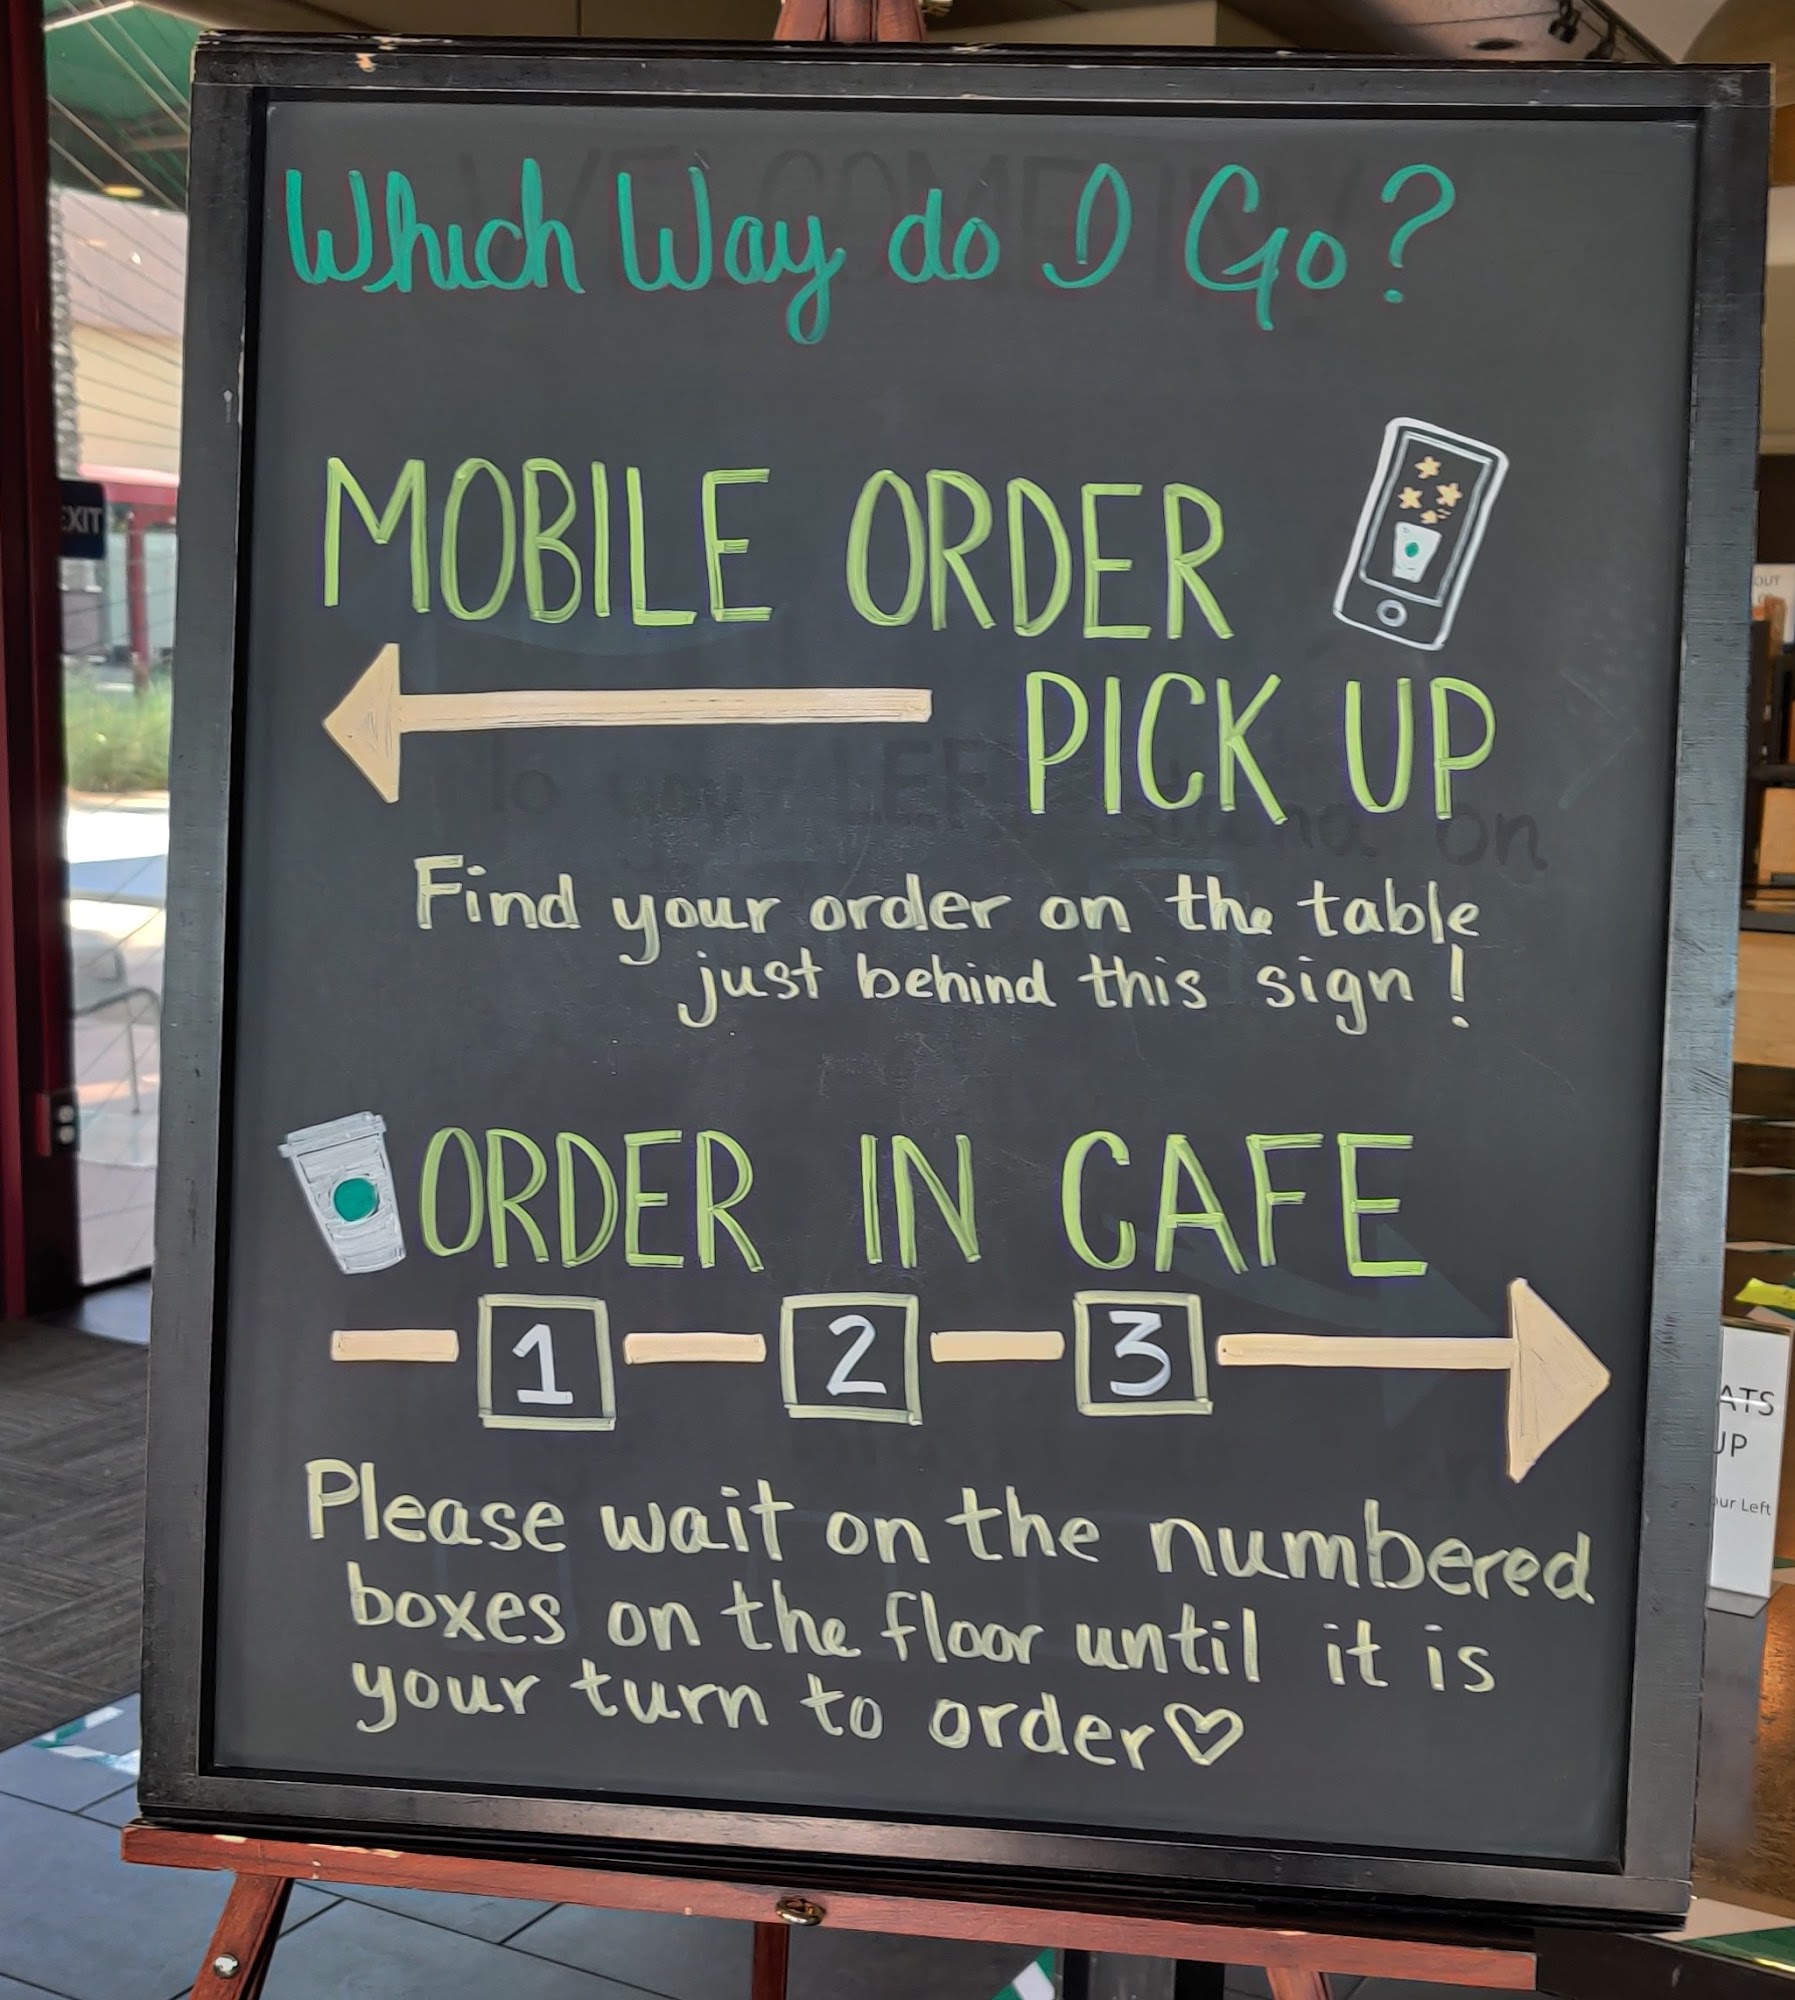 Which Way do I Go?
MOBILE ORDER
PICK UP
Find your order on the table
just behind this sign!
ORDER IN CAFE
1 2 3
Please wait on the numbered
boxes on the floor until it is
your turn to order♡
EXIT
OUT
ATS
UP
our Left